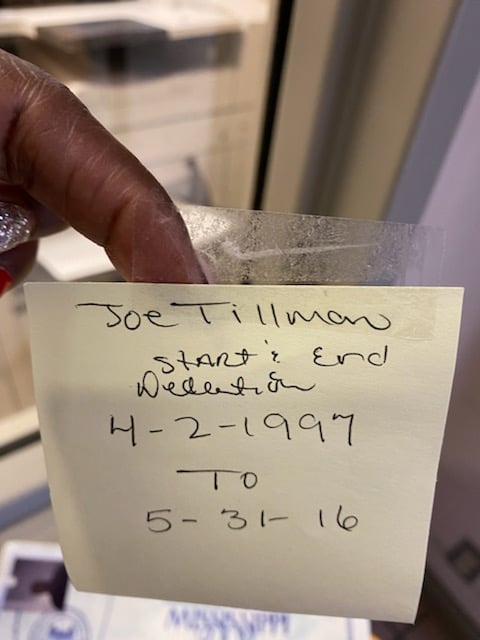 Joe Tillman
START & End
4-2-1997
TO
5-31-16
MISSISSIPPI